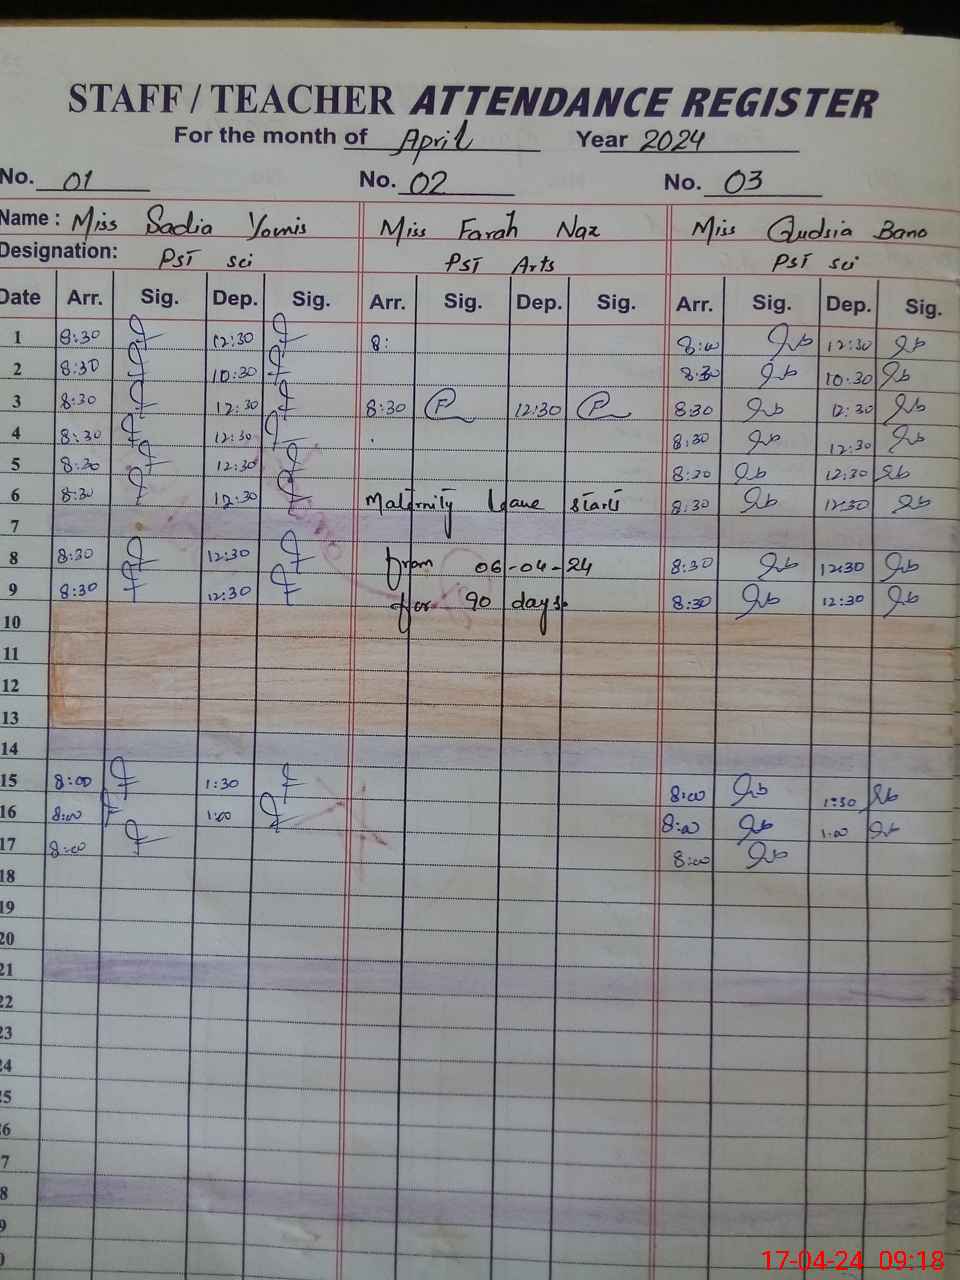 STAFF / TEACHER ATTENDANCE REGISTER
For the month of April Year 2024
No. 01 No. 02 No. 03
Name : Miss Sadia Younis Miss Farah Naz Miss Qudsia Bano
Designation: PST sci PST Arts PST sci
Date Arr. Sig. Dep. Sig. Arr. Sig. Dep. Sig. Arr. Sig. Dep. Sig.
1 8:30 12:30 8: 8:00 12:30
2 8:30 10:30 8:30 10:30
3 8:30 12:30 8:30 12:30 8:30 12:30
4 8:30 12:30 8:30 12:30
5 8:30 12:30 8:30 12:30
6 8:30 12:30 Maternity leave starts 8:30 12:30
7
8 8:30 12:30 from 06-04-24 8:30 12:30
9 8:30 12:30 for 90 days. 8:30 12:30
10
11
12
13
14
15 8:00 1:30 8:00 1:30
16 8:00 1:00 8:00 1:00
17 8:00 8:00
18
19
20
21
22
23
24
25
26
7
8
9
0
17-04-24 09:18